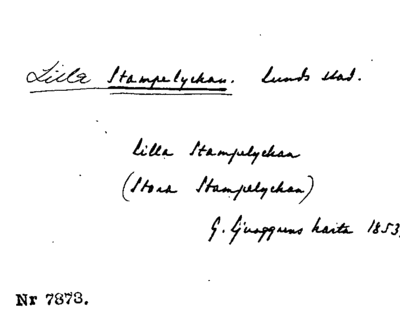 Lilla Stampelyckan. Lunds stad.
Lilla Stampelyckan
(Stora Stampelyckan)
G. Ljunggrens karta 1853.
Nr 7873.